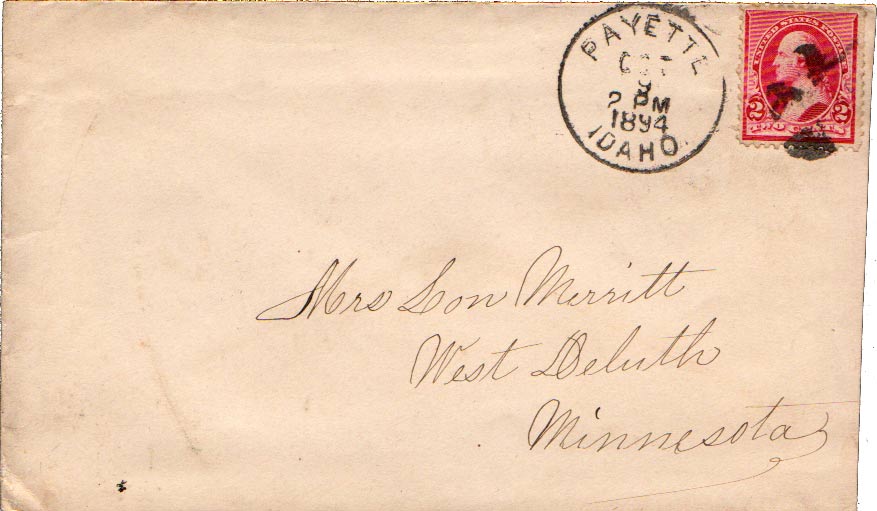 PAYETTE
OCT
9
2 PM
1894
IDAHO.
UNITED STATES POSTAGE
2 2
TWO CENTS
Mrs Lon Merritt
West Deluth
Minnesota